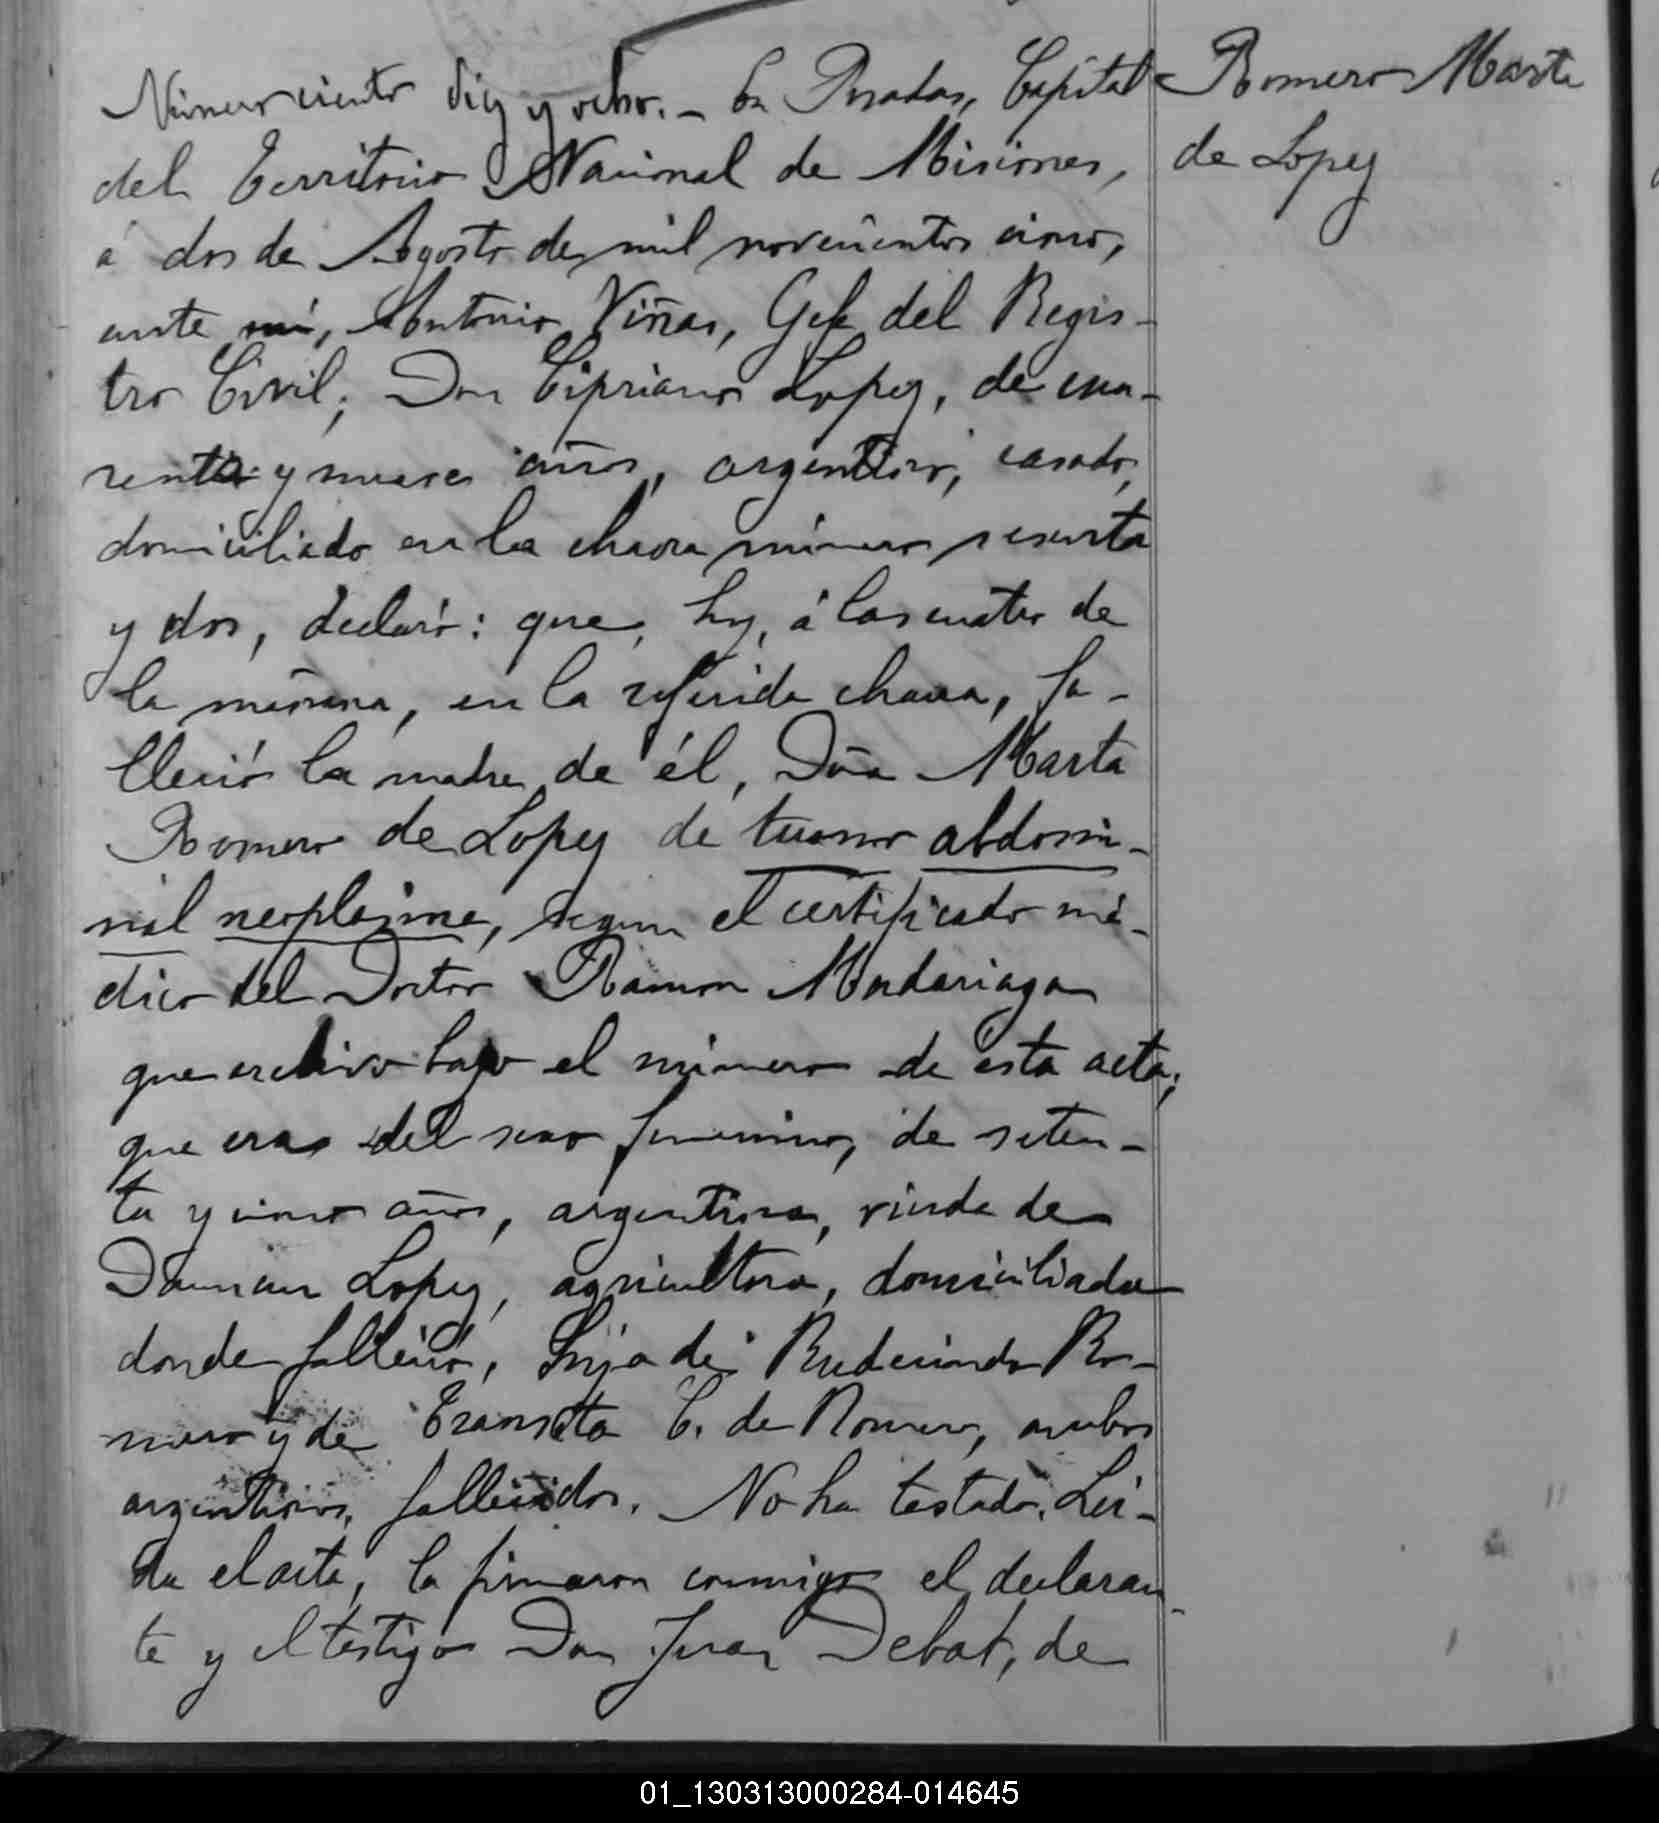 Número ciento diez y ocho. - En Posadas, Capital
del Territorio Nacional de Misiones,
á dos de Agosto de mil novecientos cinco,
ante mí, Antonio Viñas, Gefe del Regis-
tro Civil; Don Cipriano Lopez, de cua-
renta y nueve años, argentino, casado,
domiciliado en la chacra número sesenta
y dos, declaró: que, hoy, á las cuatro de
la mañana, en la referida chacra, fa-
lleció la madre de él, Doña Marta
Romero de Lopez de tumor abdomi-
nal neoplasma, segun el certificado mé-
dico del Doctor Ramon Madariaga
que archivo bajo el número de esta acta;
que era del sexo femenino, de seten-
ta y cinco años, argentina, viuda de
Damian Lopez, agricultora, domiciliada
donde falleció, hija de Rudecindo Ro-
mero y de Transita C. de Romero, ambos
argentinos, fallecidos. No ha testado. Lei-
da el acta, la firmaron conmigo el declaran-
te y el testigo Don Juan Debat, de
Romero Marta
de Lopez
01_130313000284-014645